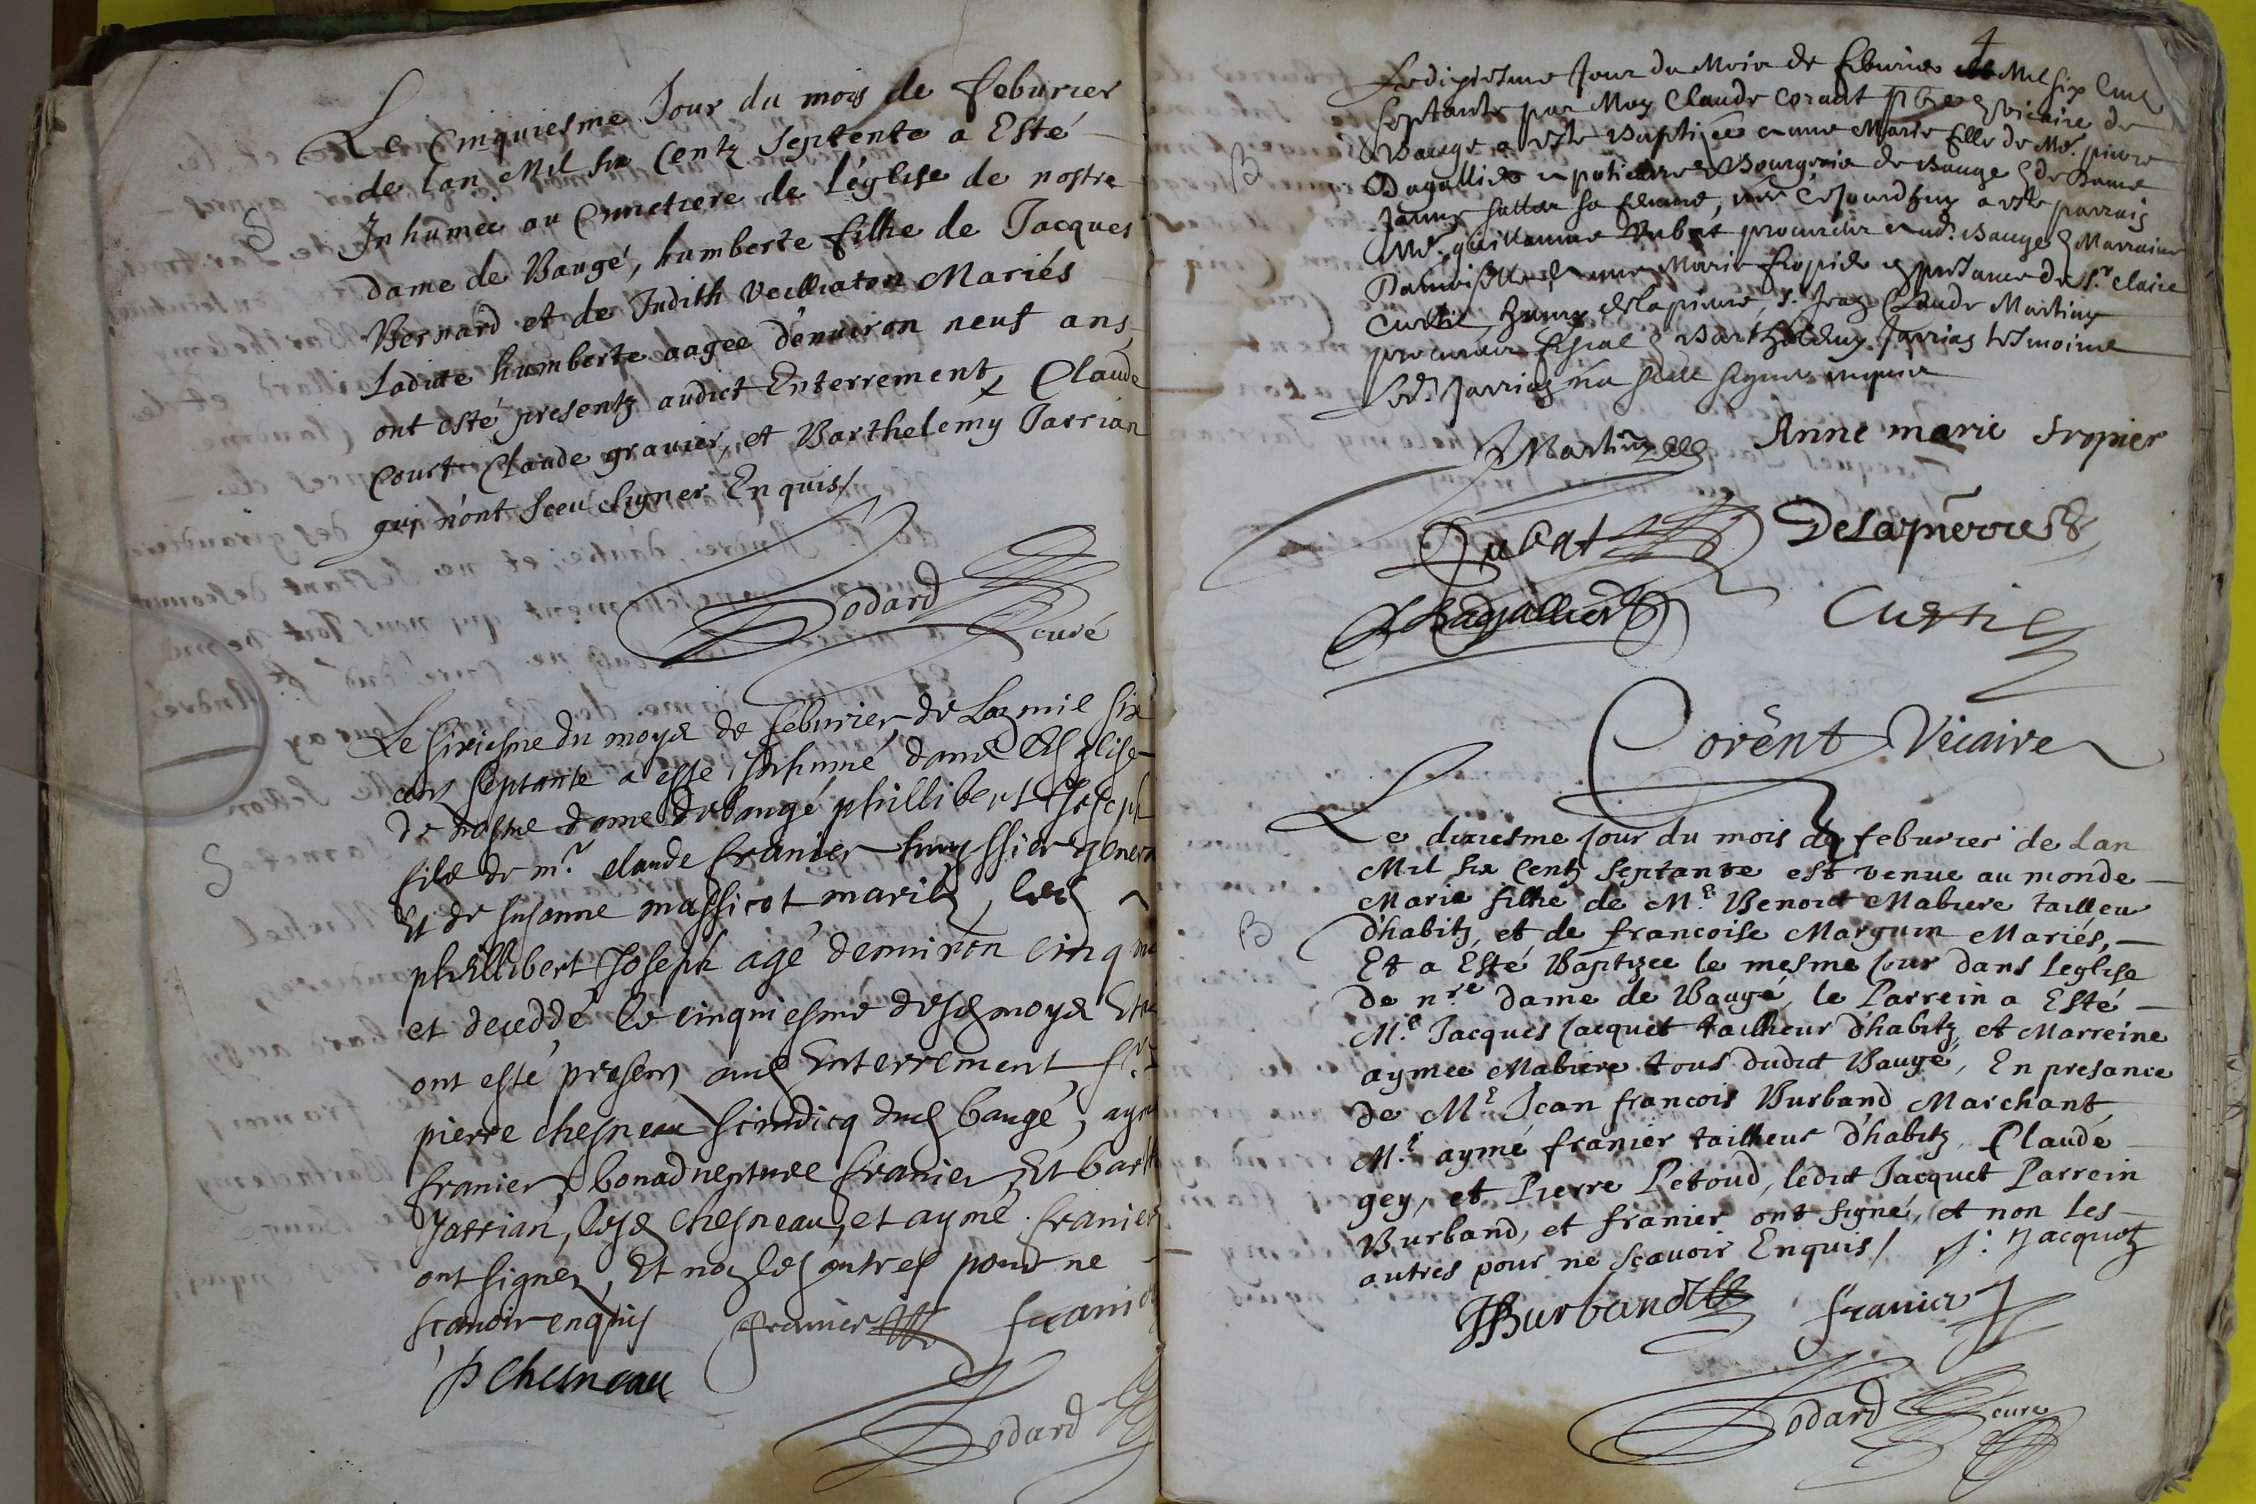 Le Cinquiesme Jour du mois de feburier
de lan Mil six Centz septente a Esté
S
Inhumée au Cymetiere de L'églize de nostre
dame de Baugé, humberte fillie de Jacques
Bernard et de Judith Veilliaton Mariés
Ladite humberte aagée d'enuiron neuf ans
ont esté presentz audict Enterrement, Claude
Court Claude grauier, et Barthelemy Jarrian
qui n'ont sceu signer Enquis/
Dodard
curé
Le sixiesme du moys de feburier de Lan mil six
cens septante a esté Inhumé dans L'Esglise
de nostre dame de baugé phillibert Joseph
S
filz de mr. claude franier huyssier genera
Et de susanne massicot mariés, led
phillibert Joseph agé denuiron cinq
et decedde le cinquiesme desd moys Et
ont esté presens aud Enterrement Sr.
pierre chesneau scindicq dud baugé, aym
franier, bonaduepture franier, Et bart
Jarrian, lesd chesneau, et aymé franier
ont signez, Et non les autres pour ne
scauoir enquis
franier
franier
P Chesneau
Dodard
4
Le dixiesme Jour du Mois de feburier Mil six Cens
septante par Moy Claude Corent pbre & vicaire de
Baugé a esté Baptizée anne Marie fille de Mr. pierre
B
Dagallier apoticaire & Bourgeois de Baugé & de Dame
sa femme, née Cejourdhuy a esté parrain
Mr. guillaume Dubat procureur aud. Baugé & Marraine
Damoiselle anne Marie fropier en presance de Sr. claire
Curtil, delapierre, Sr. Jean Claude Martine
procureur fiscal & Barthelemy Jarrian tesmoins
led. Jarrian n'a sceu signer enquis
Martine
Anne marie fropier
Dubat
Delapierre
Dagallier
Curtil
Corent Vicaire
Le dixiesme Jour du mois de feburier de Lan
Mil six Centz Septante est venue au monde
Marie fillie de Me. Benoict Mabiere tailleu
B
d'habitz, et de francoise Marguin Mariés,
Et a Esté Baptizee le mesme Jour dans Leglise
de nre. dame de Baugé, le Parrein a Esté
Me. Jacques Jacquet tailleur d'habitz, et Marreine
aymee Mabiere tous dudict Baugé, En presance
de Me. Jean francois Burband Marchant,
Me. aymé franier tailleur d'habitz, Claude
gey, et Pierre Petoud, ledict Jacquet Parrein
Burband, et franier ont signé, et non les
autres pour ne scauoir Enquis/ J: Jacquet
JBurband
franier
Dodard
curé